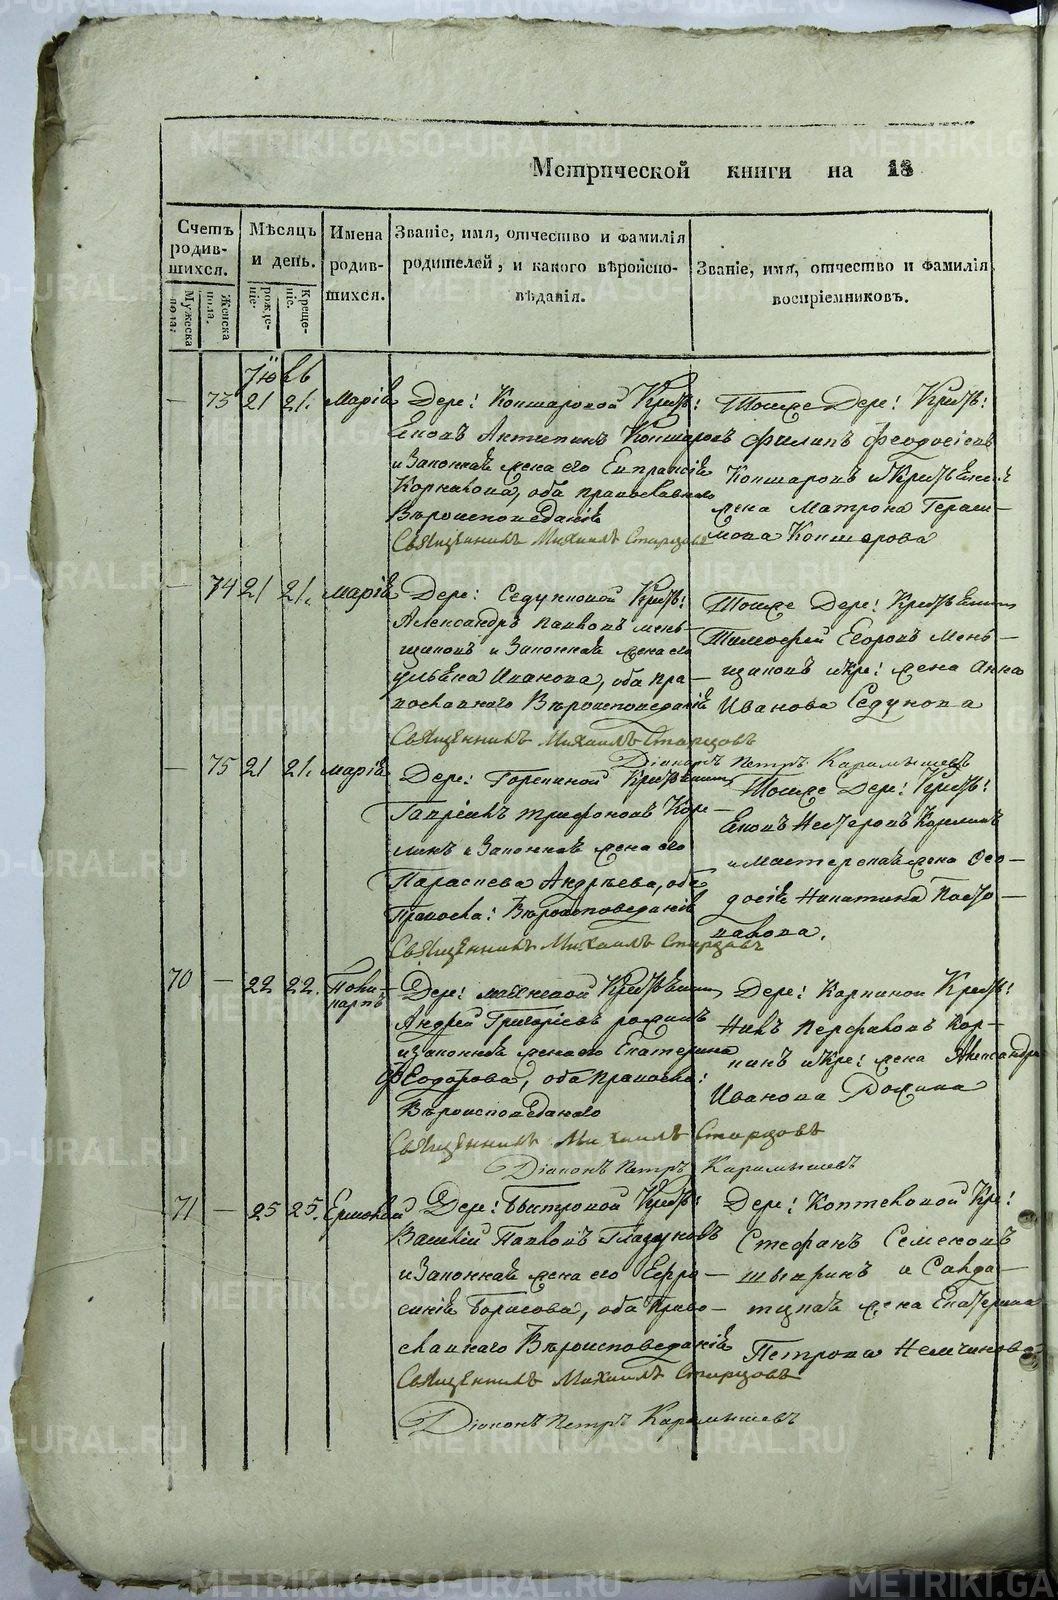 Метрической книги на 18
Счетъ родив-шихся.
Мужеска пола.
Женска пола.
Мѣсяцъ и день.
рожде-ніе.
Креще-ніе.
Имена родив-шихся.
Званіе, имя, отчество и фамилія
родителей, и какого вѣроиспо-
вѣданія.
Званіе, имя, отчество и фамилія
воспріемниковъ.
Іюль
— 73 21 21. Марія
Дере: Кокшаровой Крест:
Антипинъ Кокшаровъ
и Законная жена его Евпраксія
Корнилова, оба православнаго
Вѣроисповеданія
Священникъ Михаилъ Старцовъ
Тойже Дере: Крест:
Филипъ Феодосіевъ
Кокшаровъ и
жена Матрона Гераси-
мова Кокшарова
— 74 21 21. Марія
Дере: Седуновой Крест:
Александръ Павловъ мень-
щиковъ и Законная жена его
ульяна Иванова, оба пра-
вославнаго Вѣроисповеданія
Священникъ Михаилъ Старцовъ
Діаконъ Петръ Карамышевъ
Тойже Дере: Крестьянинъ
Тимофей Егоровъ Мень-
щиковъ и кре: жена Анна
Иванова Седунова
— 75 21 21. Марія
Дере: Горскиной Крестьянинъ
Гавріилъ Трифоновъ Кор-
и Законная жена его
Параскева Андрѣева, оба
Правосла: Вѣроисповеданія
Священникъ Михаилъ Старцовъ
Тойже Дере: Крест:
Нестеровъ
и Мастерская жена Фео-
досія Никитина
70 — 22 22. Поли-
карпъ
Дере: Крестьянинъ
Андрей Григоріевъ
и законная жена его Екатерина
Феодорова, оба правосла:
Вѣроисповеданіо
Священникъ Михаилъ Старцовъ
Діаконъ Петръ Карамышевъ
Дере: Корниной Крест:
Перфиловъ Кор-
нинъ и Кре: жена Александра
Иванова
71 — 25 25. Ермолай
Дере: Быстровой Крест:
Василій Павловъ Гладуновъ
и Законная жена его Евфро-
синія Борисова, оба право-
славнаго Вѣроисповеданія
Священникъ Михаилъ Старцовъ
Діаконъ Петръ Карамышевъ
Дере: Коптеловой Кре:
Стефанъ Семеновъ
и Солда-
тская жена Екатерина
Петрова Немчинова
METRIKI.GASO-URAL.RU